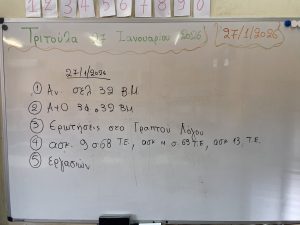 1 2 3 4 5 6 7 8 9
Τριτούλα 27 Ιανουαρίου 2026
27/1/2026
27/1/2026
① Αν σελ 32 ΒΜ
② Α+Ο 34. 32 ΒΜ
③ Ερωτήσεις στο Γραπτού Λόγου
④ ασκ. 9 σ68 Τ.Ε, ασκ 11 σ.69 Τ.Ε, ασκ 13 Τ.Ε.
⑤ Εργασιών